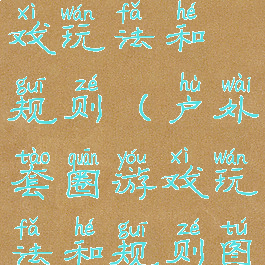 xì wán fǎ hé
戏玩法和
guī zé hù wài
规则（户外
tào quān yóu xì wán
套圈游戏玩
fǎ hé guī zé tú
法和规则图